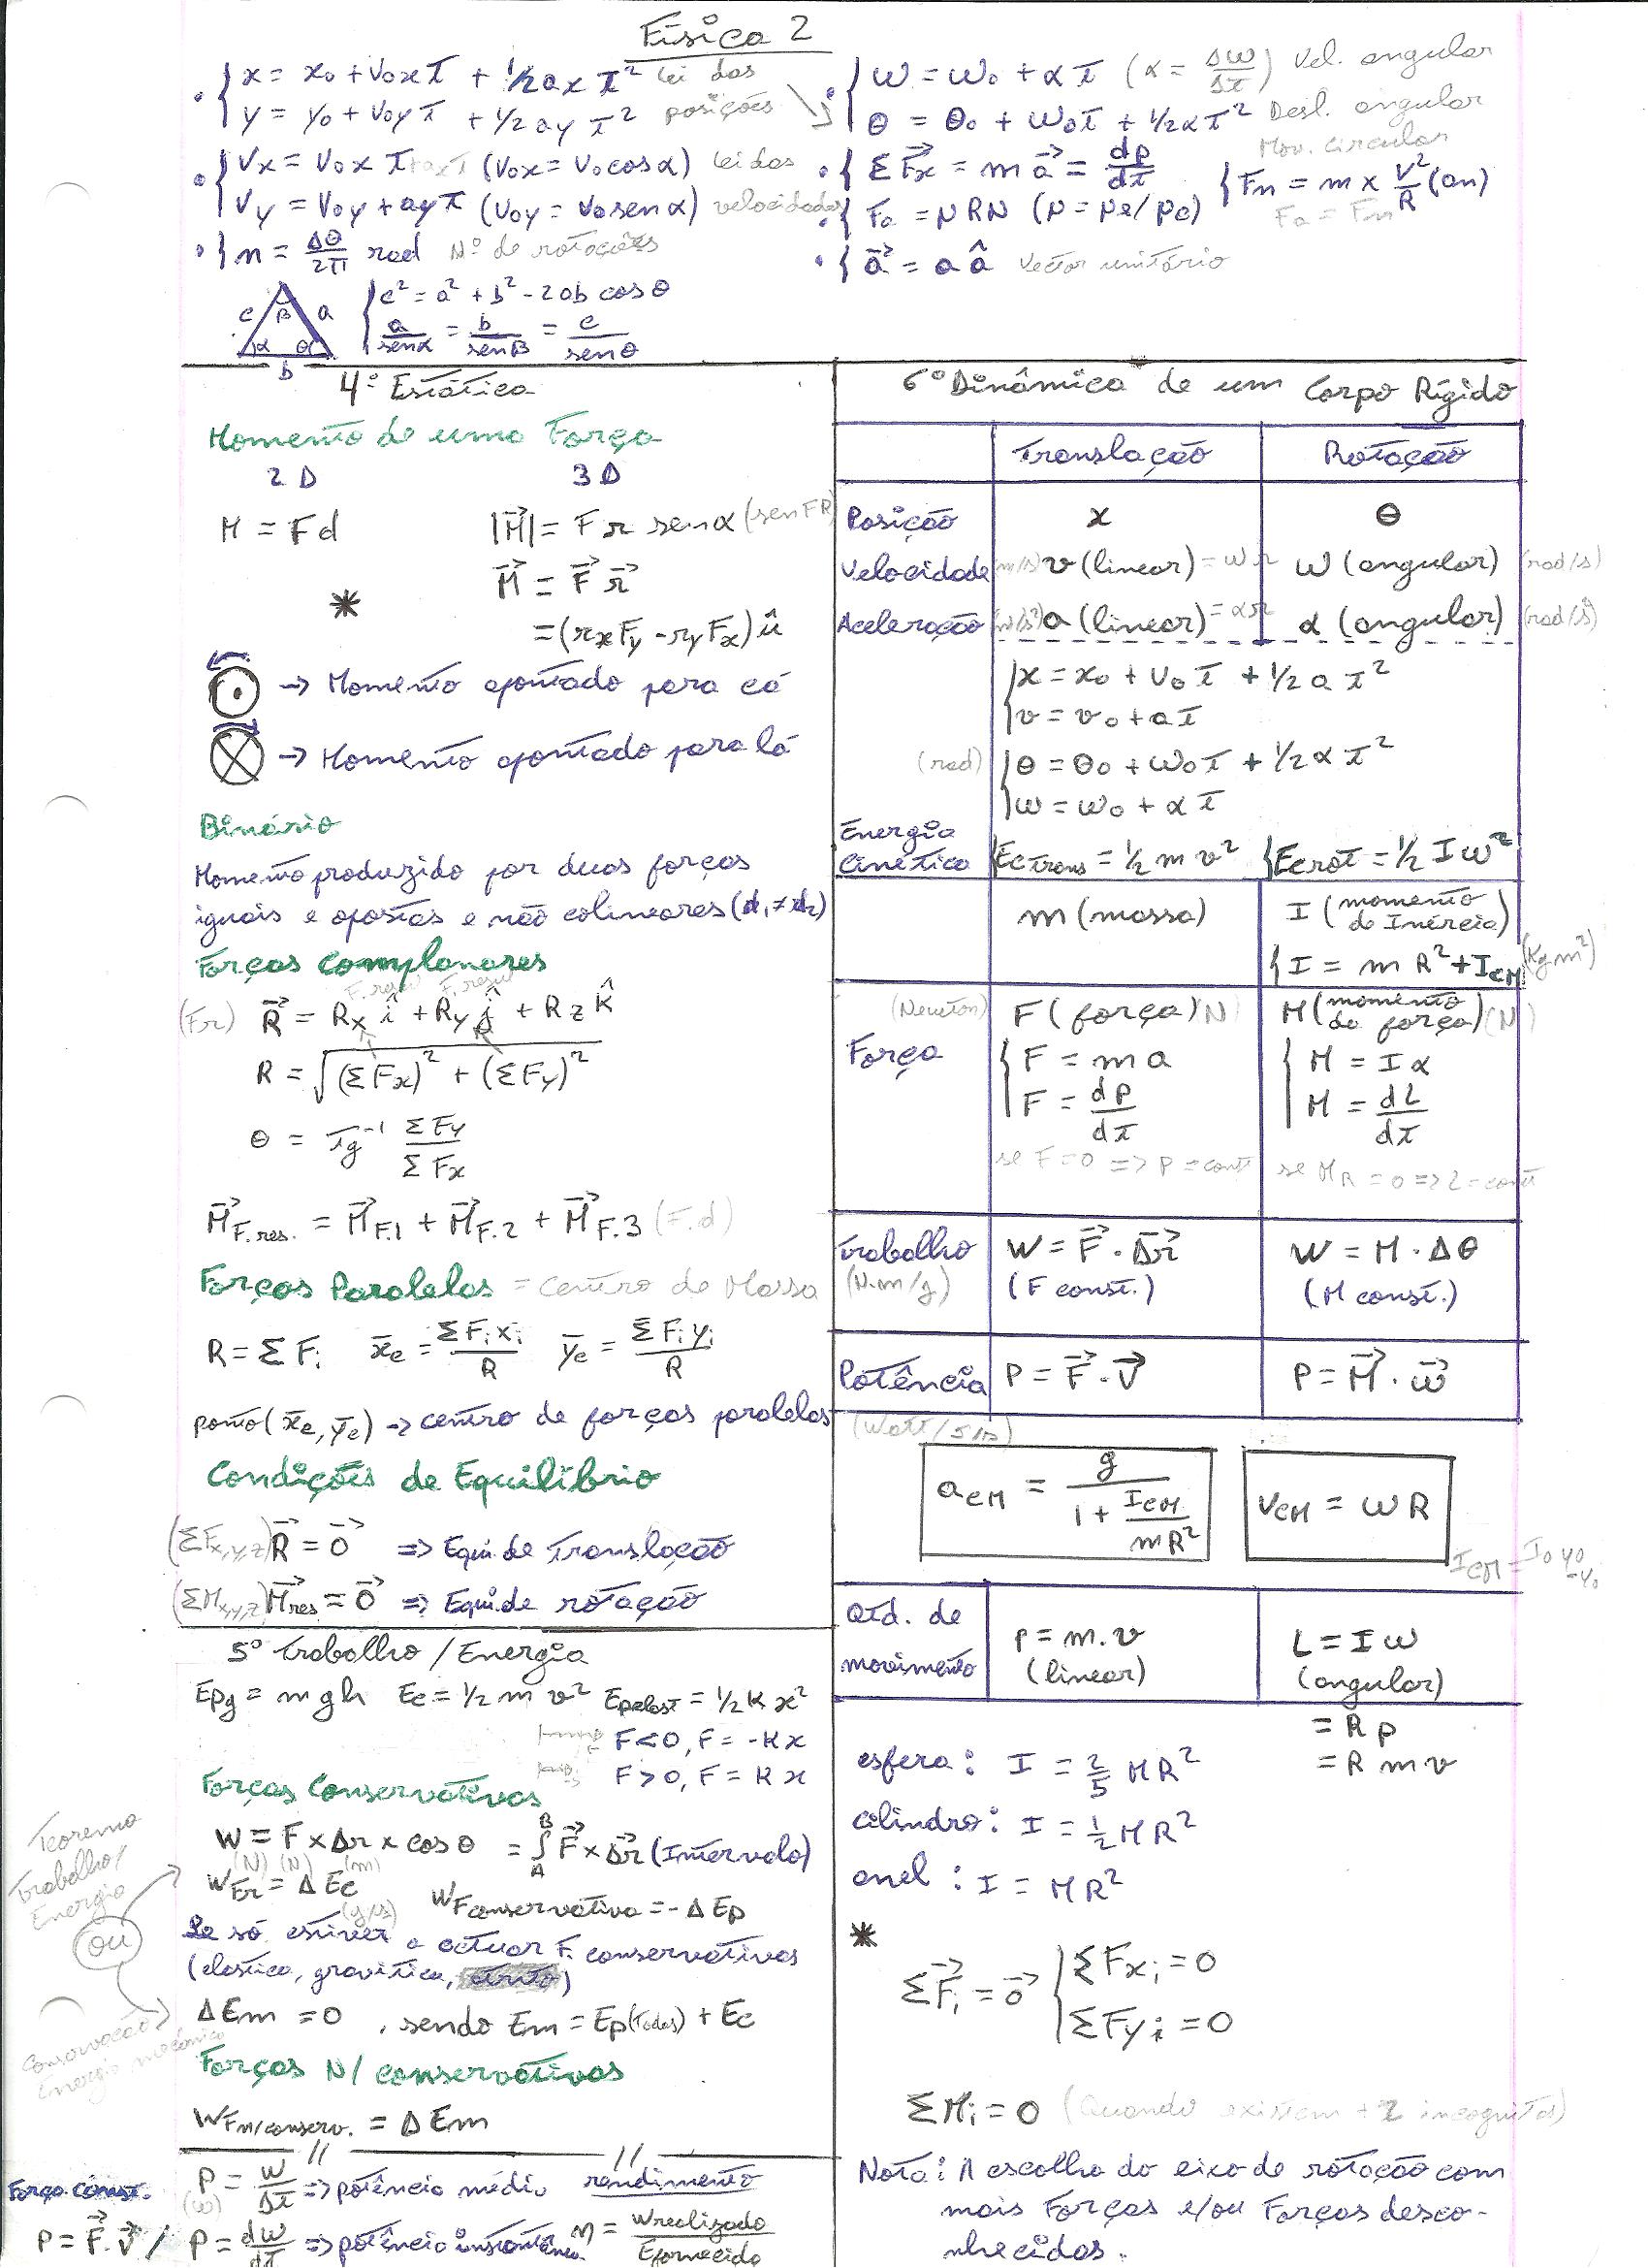 Física 2
x = x₀ + v₀x t + 1/2 ax t² lei das
y = y₀ + v₀y t + 1/2 ay t² posições
vx = v₀x t + ax t (v₀x = v₀ cos α) lei das
vy = v₀y + ay t (v₀y = v₀ sen α) velocidades
n = Δθ/2π rad Nº de rotações
c² = a² + b² - 2ab cos θ
a/sen α = b/sen β = c/sen θ
c β a
α θ
b
ω = ω₀ + α t (α = Δω/Δt) Vel. angular
θ = θ₀ + ω₀ t + 1/2 α t² Desl. angular
Mov. circular
Σ F⃗x = m a⃗ = dp/dt
Fn = m × v²/R (an)
Fa = μ RN (μ = μe/μc)
Fa = Fn
a⃗ = a â vector unitário
4º Estática
Momento de uma Força
2D 3D
M = Fd |M⃗| = F r sen α (sen FR)
M⃗ = F⃗ r⃗
* = (rx Fy - ry Fx) û
⊙ → Momento apontado para cá
⊗ → Momento apontado para lá
Binário
Momento produzido por duas forças
iguais e opostas e não colineares (d₁ ≠ d₂)
Forças Complanares
F.resul F.resul
(Fr) R⃗ = Rx î + Ry ĵ + Rz k̂
R = √((ΣFx)² + (ΣFy)²)
θ = tg⁻¹ ΣFy/ΣFx
M⃗F.res. = M⃗F.1 + M⃗F.2 + M⃗F.3 (F.d)
Forças Paralelas = Centro de Massa
R = Σ Fi x̄c = ΣFi xi/R ȳc = ΣFi yi/R
ponto (x̄c, ȳc) → centro de forças paralelas
Condições de Equilíbrio
(ΣFx,y,z) R⃗ = 0⃗ => Equi. de Translação
(ΣMx,y,z) M⃗res = 0⃗ => Equi. de rotação
5º Trabalho / Energia
Epg = mgh Ec = 1/2 m v² Epelast = 1/2 K x²
F<0, F = -Kx
F>0, F = Kx
Forças Conservativas
W = F × Δr × cos θ = ∫ᴬᴮ F⃗ × Δr⃗ (Intervalo)
(N) (N) (m)
WFr = Δ Ec
WFconservativa = -Δ Ep
Teorema
Trabalho/
Energia
ou
Conservação
Energia mecânica
Se só estiver a actuar F. conservativas
(elástica, gravítica, atrito)
ΔEm = 0, sendo Em = Ep(Todas) + Ec
Forças N/ conservativas
WFn/conserv. = Δ Em
// //
Força Const. P = W/Δt => potência média rendimento
(w)
P = F⃗.v⃗ / P = dW/dt => potência instantânea η = Wrealizado/Efornecido
6º Dinâmica de um Corpo Rígido
Translação Rotação
Posição x θ
Velocidade (m/s) v (linear) = ωr ω (angular) (rad/s)
Aceleração (m/s²) a (linear) = αr α (angular) (rad/s²)
x = x₀ + v₀ t + 1/2 a t²
v = v₀ + a t
(rad) θ = θ₀ + ω₀ t + 1/2 α t²
ω = ω₀ + α t
Energia
Cinética Ectrans = 1/2 m v² Ecrot = 1/2 I ω²
m (massa) I (momento de Inércia)
I = m R² + ICM (Kg m²)
(Newton) F (força) (N) M (momento da força) (N)
Força F = m a M = I α
F = dp/dt M = dL/dt
se F = 0 => p = const se MR = 0 => L = const
Trabalho W = F⃗ . Δr⃗ W = M . Δθ
(N.m/J) (F const.) (M const.)
Potência P = F⃗ . v⃗ P = M⃗ . ω⃗
aCM = g/(1 + ICM/mR²) vCM = ωR
Qtd. de
movimento p = m.v L = I ω
(linear) (angular)
= R p
= R m v
esfera: I = 2/5 MR²
cilindro: I = 1/2 MR²
anel: I = MR²
*
ΣF⃗i = 0⃗ ΣFxi = 0
ΣFyi = 0
ΣMi = 0 (Quando existem + 2 incognitas)
Nota: A escolha do eixo de rotação com
mais Forças e/ou Forças desco-
nhecidas.